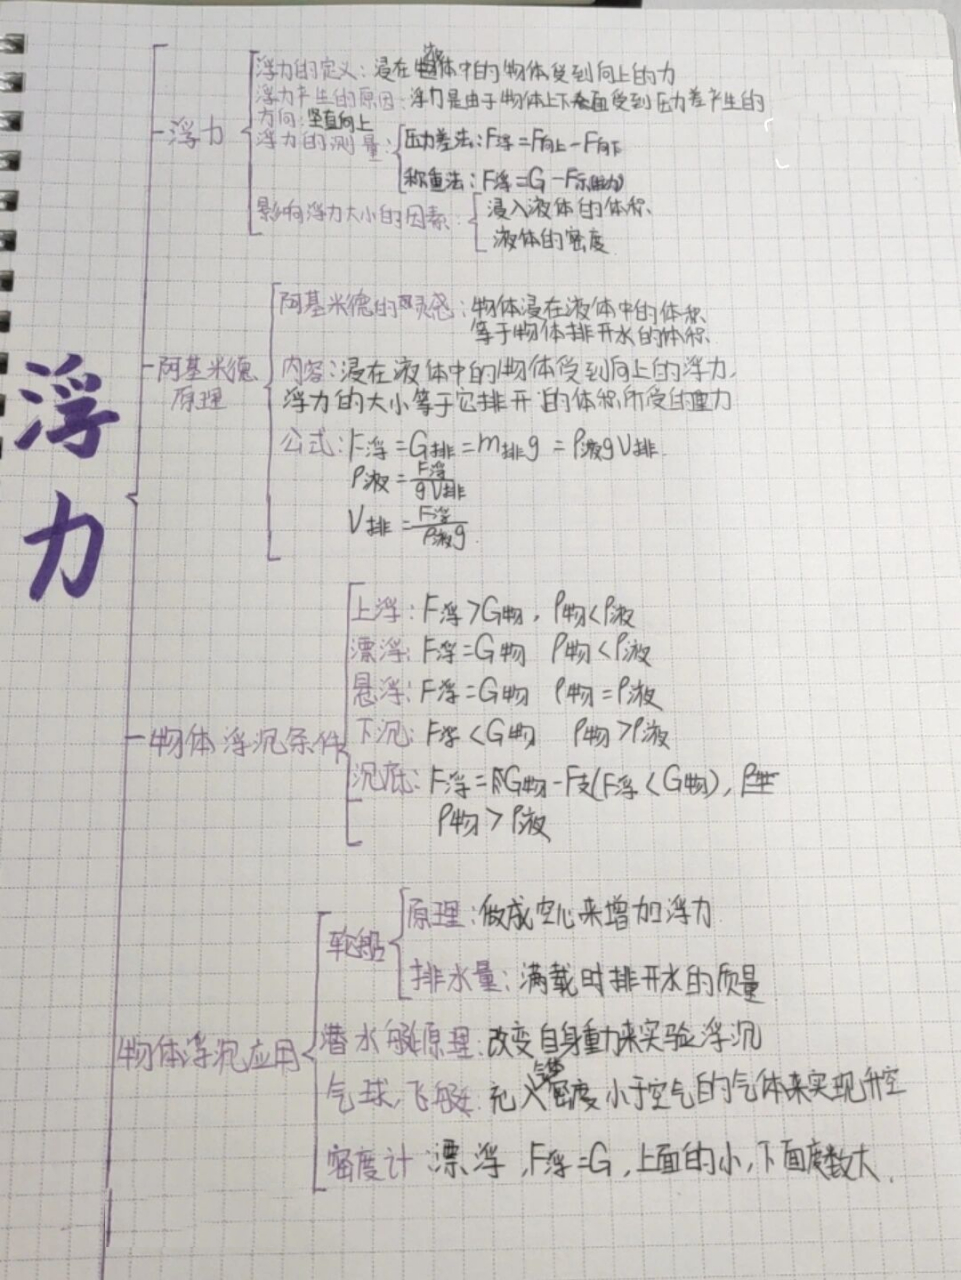 浮力
浮力
浮力的定义：浸在液体中的物体受到向上的力
浮力产生的原因：浮力是由于物体上下表面受到压力差产生的
方向：竖直向上
浮力的测量：
压力差法：F浮=F向上-F向下
称重法：F浮=G-F示(拉力)
影响浮力大小的因素：
浸入液体的体积
液体的密度
阿基米德
原理
阿基米德的灵感：物体浸在液体中的体积
等于物体排开水的体积
内容：浸在液体中的物体受到向上的浮力，
浮力的大小等于它排开的体积所受的重力
公式：F浮=G排=m排g=ρ液gV排
ρ液=F浮/gV排
V排=F浮/ρ液g
物体浮沉条件
上浮：F浮>G物，ρ物<ρ液
漂浮：F浮=G物 ρ物<ρ液
悬浮：F浮=G物 ρ物=ρ液
下沉：F浮<G物 ρ物>ρ液
沉底：F浮=G物-F支(F浮<G物)，
ρ物>ρ液
物体浮沉应用
轮船
原理：做成空心来增加浮力
排水量：满载时排开水的质量
潜水艇原理：改变自身重力来实验浮沉
气球，飞艇：充入密度小于空气的气体来实现升空
密度计 漂浮，F浮=G，上面的小，下面度数大.